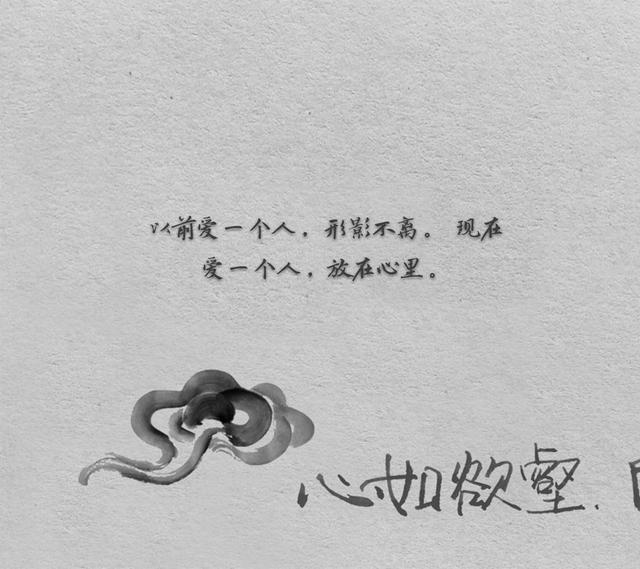 以前爱一个人，形影不离。 现在
爱一个人，放在心里。
心如欲壑.